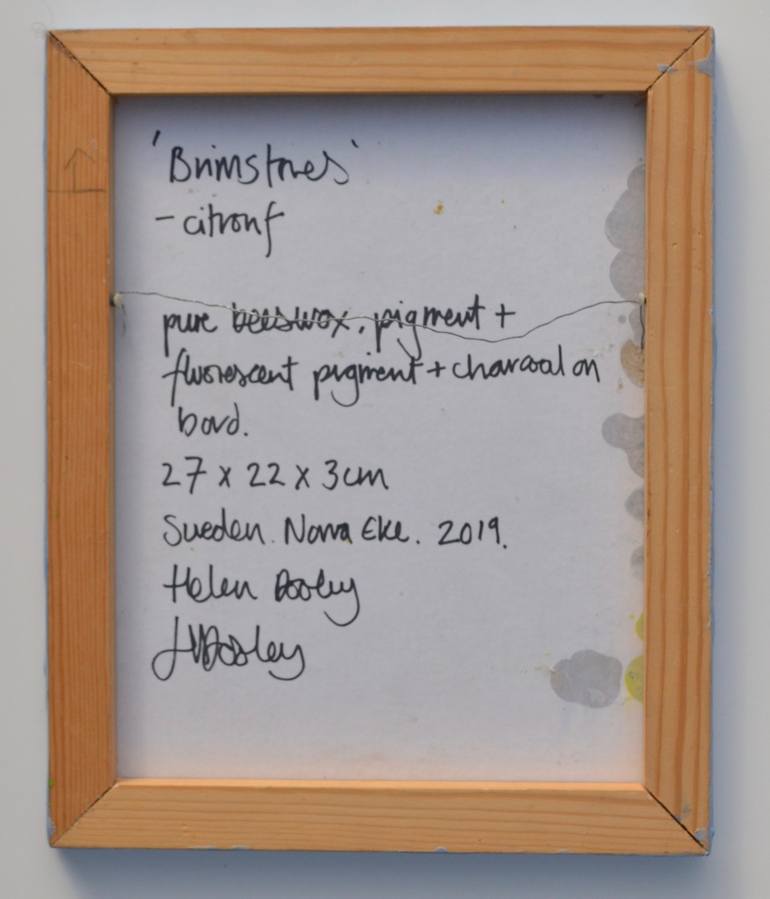 'Brimstones'
- citronf
pure beeswax, pigment +
fluorescent pigment + charcoal on
bord.
27 x 22 x 3cm
Sweden. Norra Eke. 2019.
Helen Booley